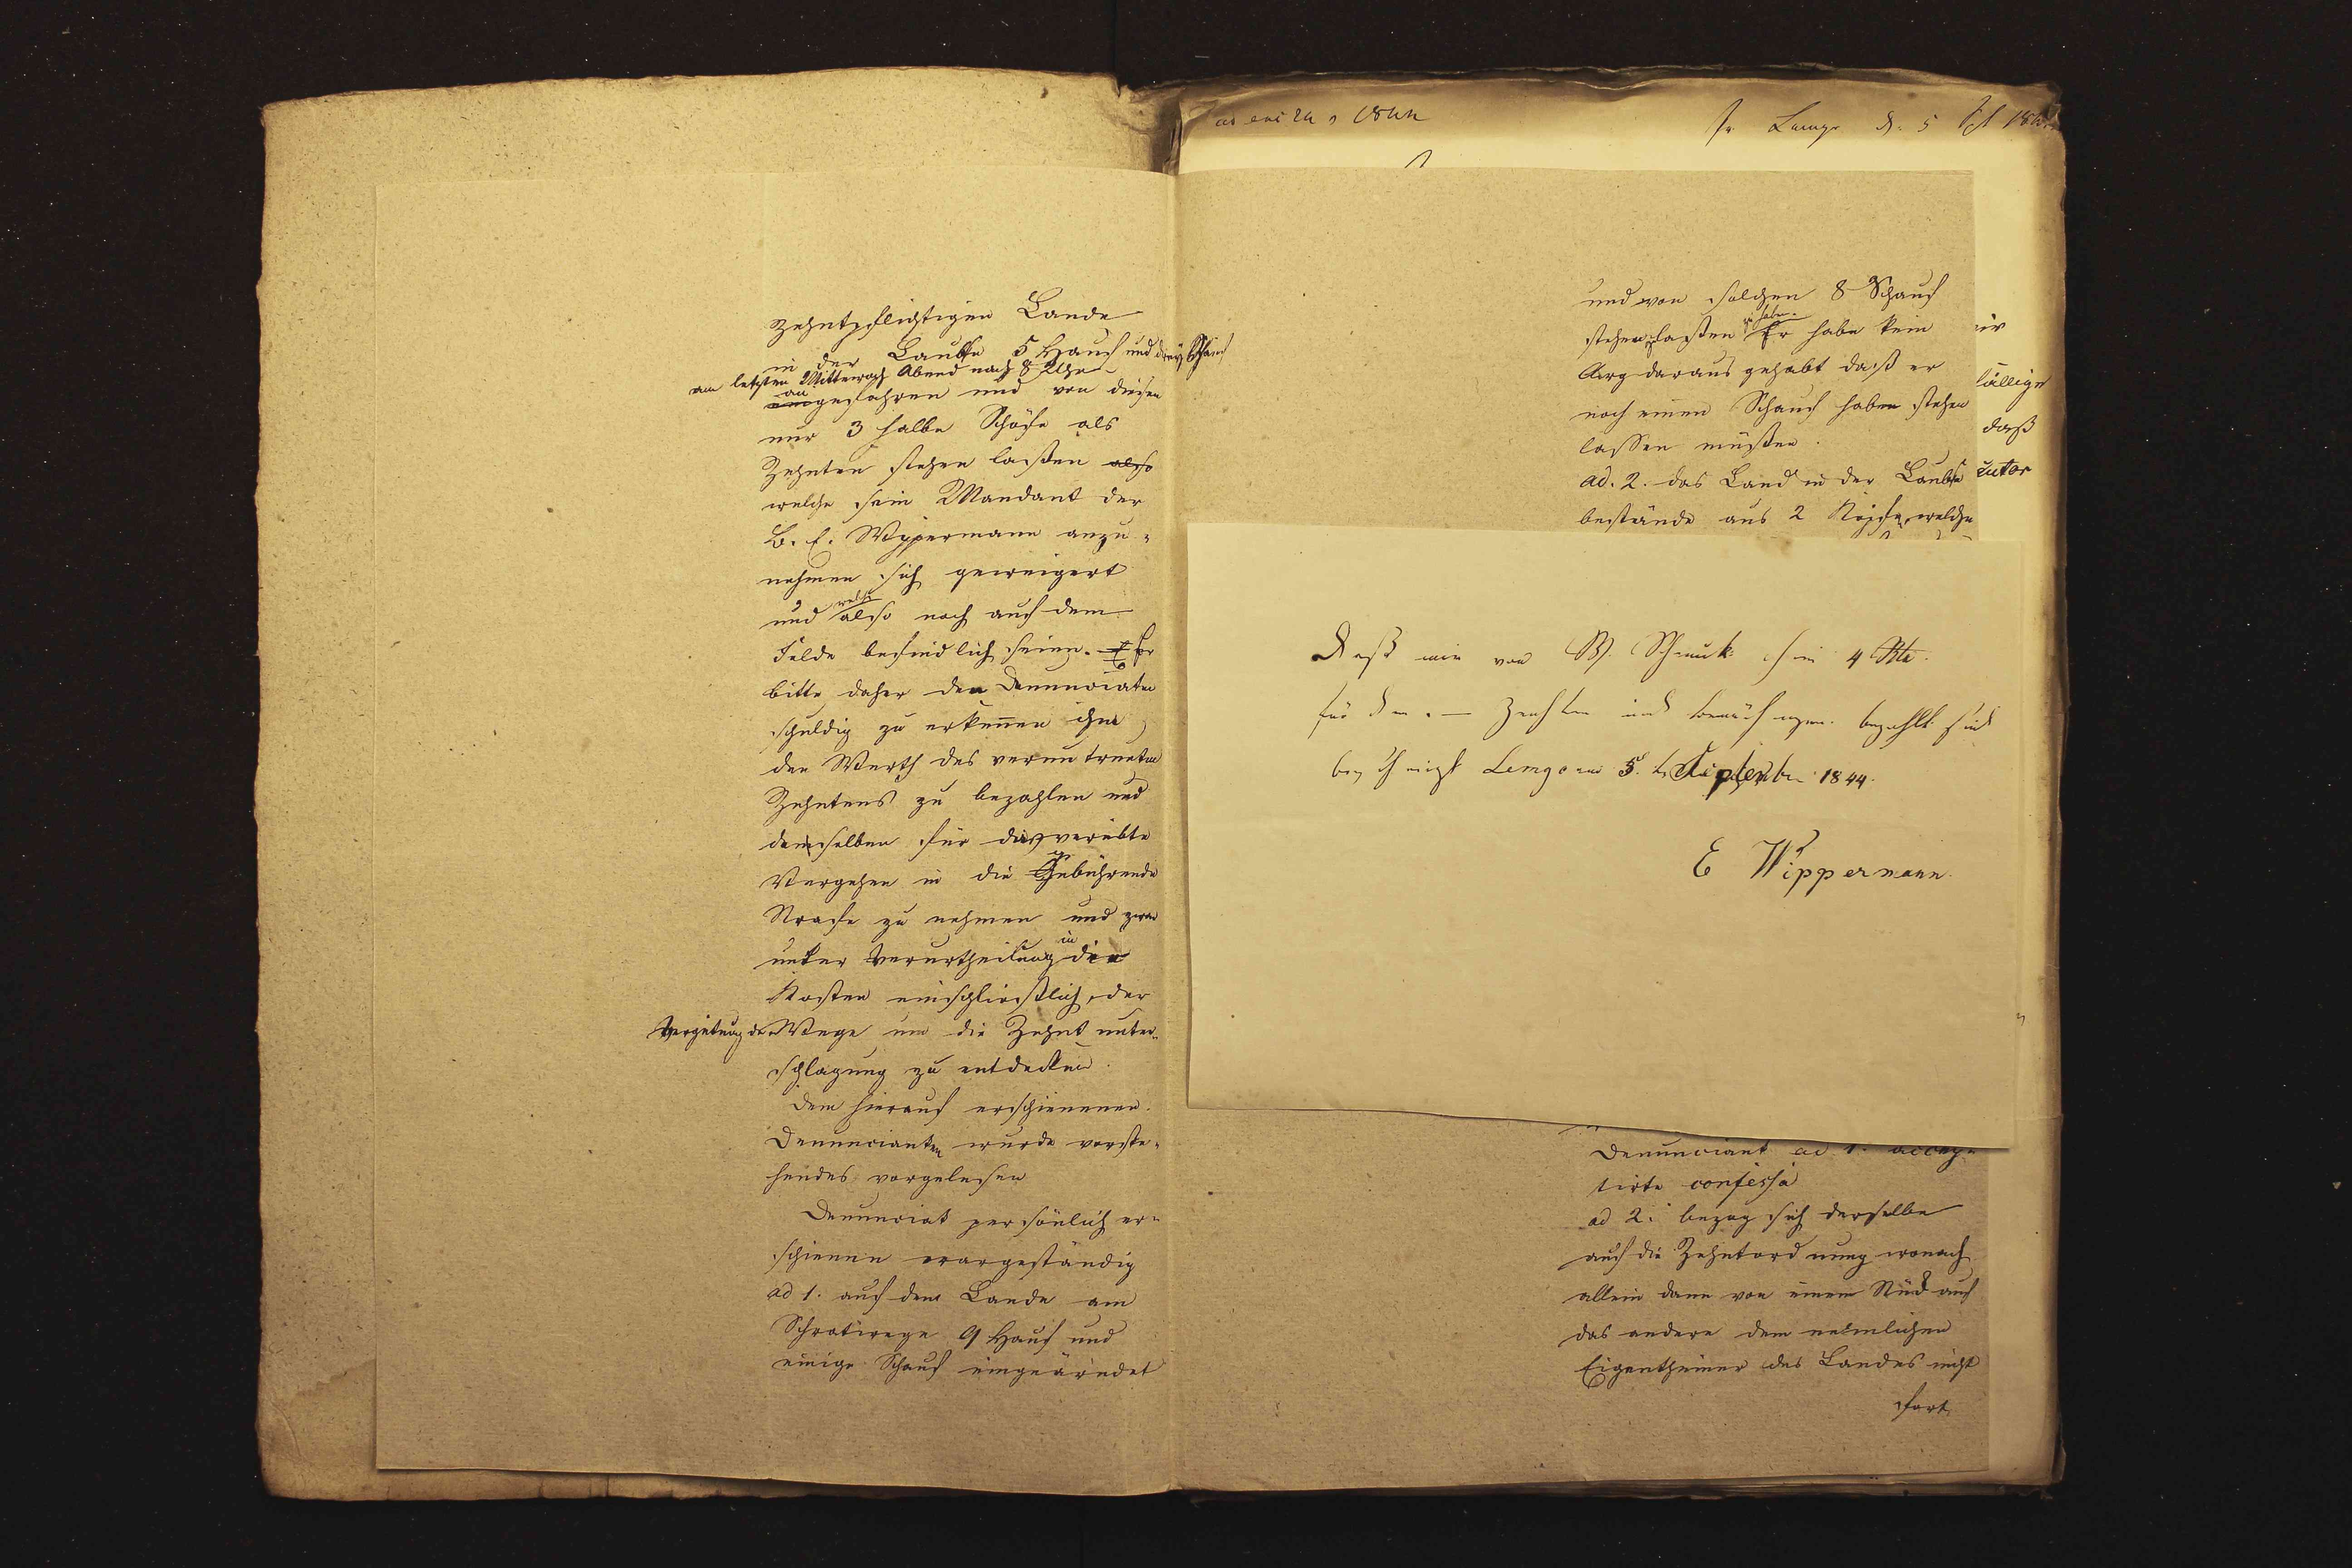 zehntpflichtigen Lande
in der Laubke 5 Hauf und drey Schauf
am letzten Mittewoch Abend nach 8 Uhr
angefahren und von diesen
nur 3 halbe Schöfe als
Zehnten stehen laßen also
welche sein Mandant der
B. E. Wippermann anzu-
nehmen sich geweigert
und welche also noch auf dem
Felde befindlich seien. Er
bitte daher den Denunciaten
schuldig zu erkennen ihm
den Werth des veruntreuten
Zehntens zu bezahlen und
demselben für das verübte
Vergehen in die gebührende
Strafe zu nehmen und zwar
unter Verurtheilung in die
Kosten einschließlich der
Vergütung der Wege um die Zehnt unter-
schlagung zu entdecken.
Dem hierauf erschienenen
Denuncianten wurde vorste-
hendes vorgelesen
Denunciat persönlich er-
schienen war geständig
ad 1. auf dem Lande am
9 Hauf und
einige Schauf eingeärndet
1844
Lemgo d. 5 Spt 184
und von solchen 8 Schauf
stehen laßen zu haben. Er habe kein
Arg daraus gehabt daß er
noch einen Schauf haben stehen
lassen müßen.
ad. 2. das Land in der Laubke
bestände aus 2 welche
fällige
daß
cutor
Daß mir von W. hin 4 Rtr.
für den Zehnten und bezahlt sind
bescheinigt Lemgo am 5. September 1844.
E Wippermann
Denunciant ad 1. accep-
tirte confessa
ad 2. bezog sich derselbe
auf die Zehntordnung wonach
allein dann von einem Stück auf
das andere dem nehmlichen
Eigenthümer des Landes nicht
fort